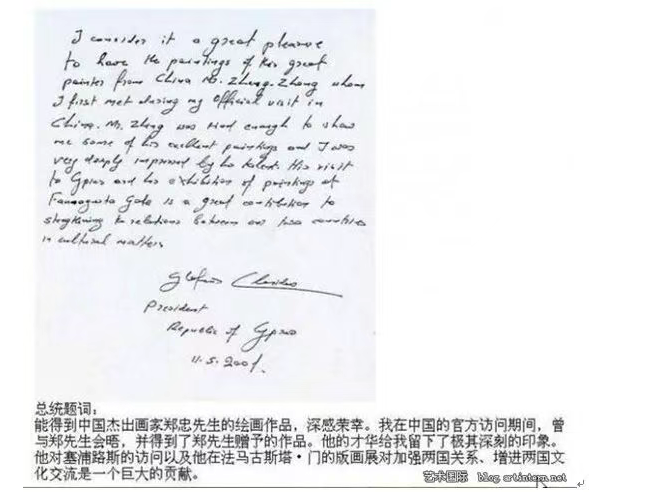 I consider it a great pleasure
to have the paintings of this great
painter from China Mr. Zheng-Zhong whom
I first met during my official visit in
China. Mr. Zheng was kind enough to show
me some of his excellent paintings and I was
very deeply impressed by his talent. His visit
to Cyprus and his exhibition of paintings at
Famagusta Gate is a great contribution to
relations between our two countries
in cultural matters
President
Republic of Cyprus
11.5.2001.
总统题词：
能得到中国杰出画家郑忠先生的绘画作品，深感荣幸。我在中国的官方访问期间，曾
与郑先生会晤，并得到了郑先生赠予的作品。他的才华给我留下了极其深刻的印象。
他对塞浦路斯的访问以及他在法马古斯塔·门的版画展对加强两国关系、增进两国文
化交流是一个巨大的贡献。
艺术国际 blog.artintern.net